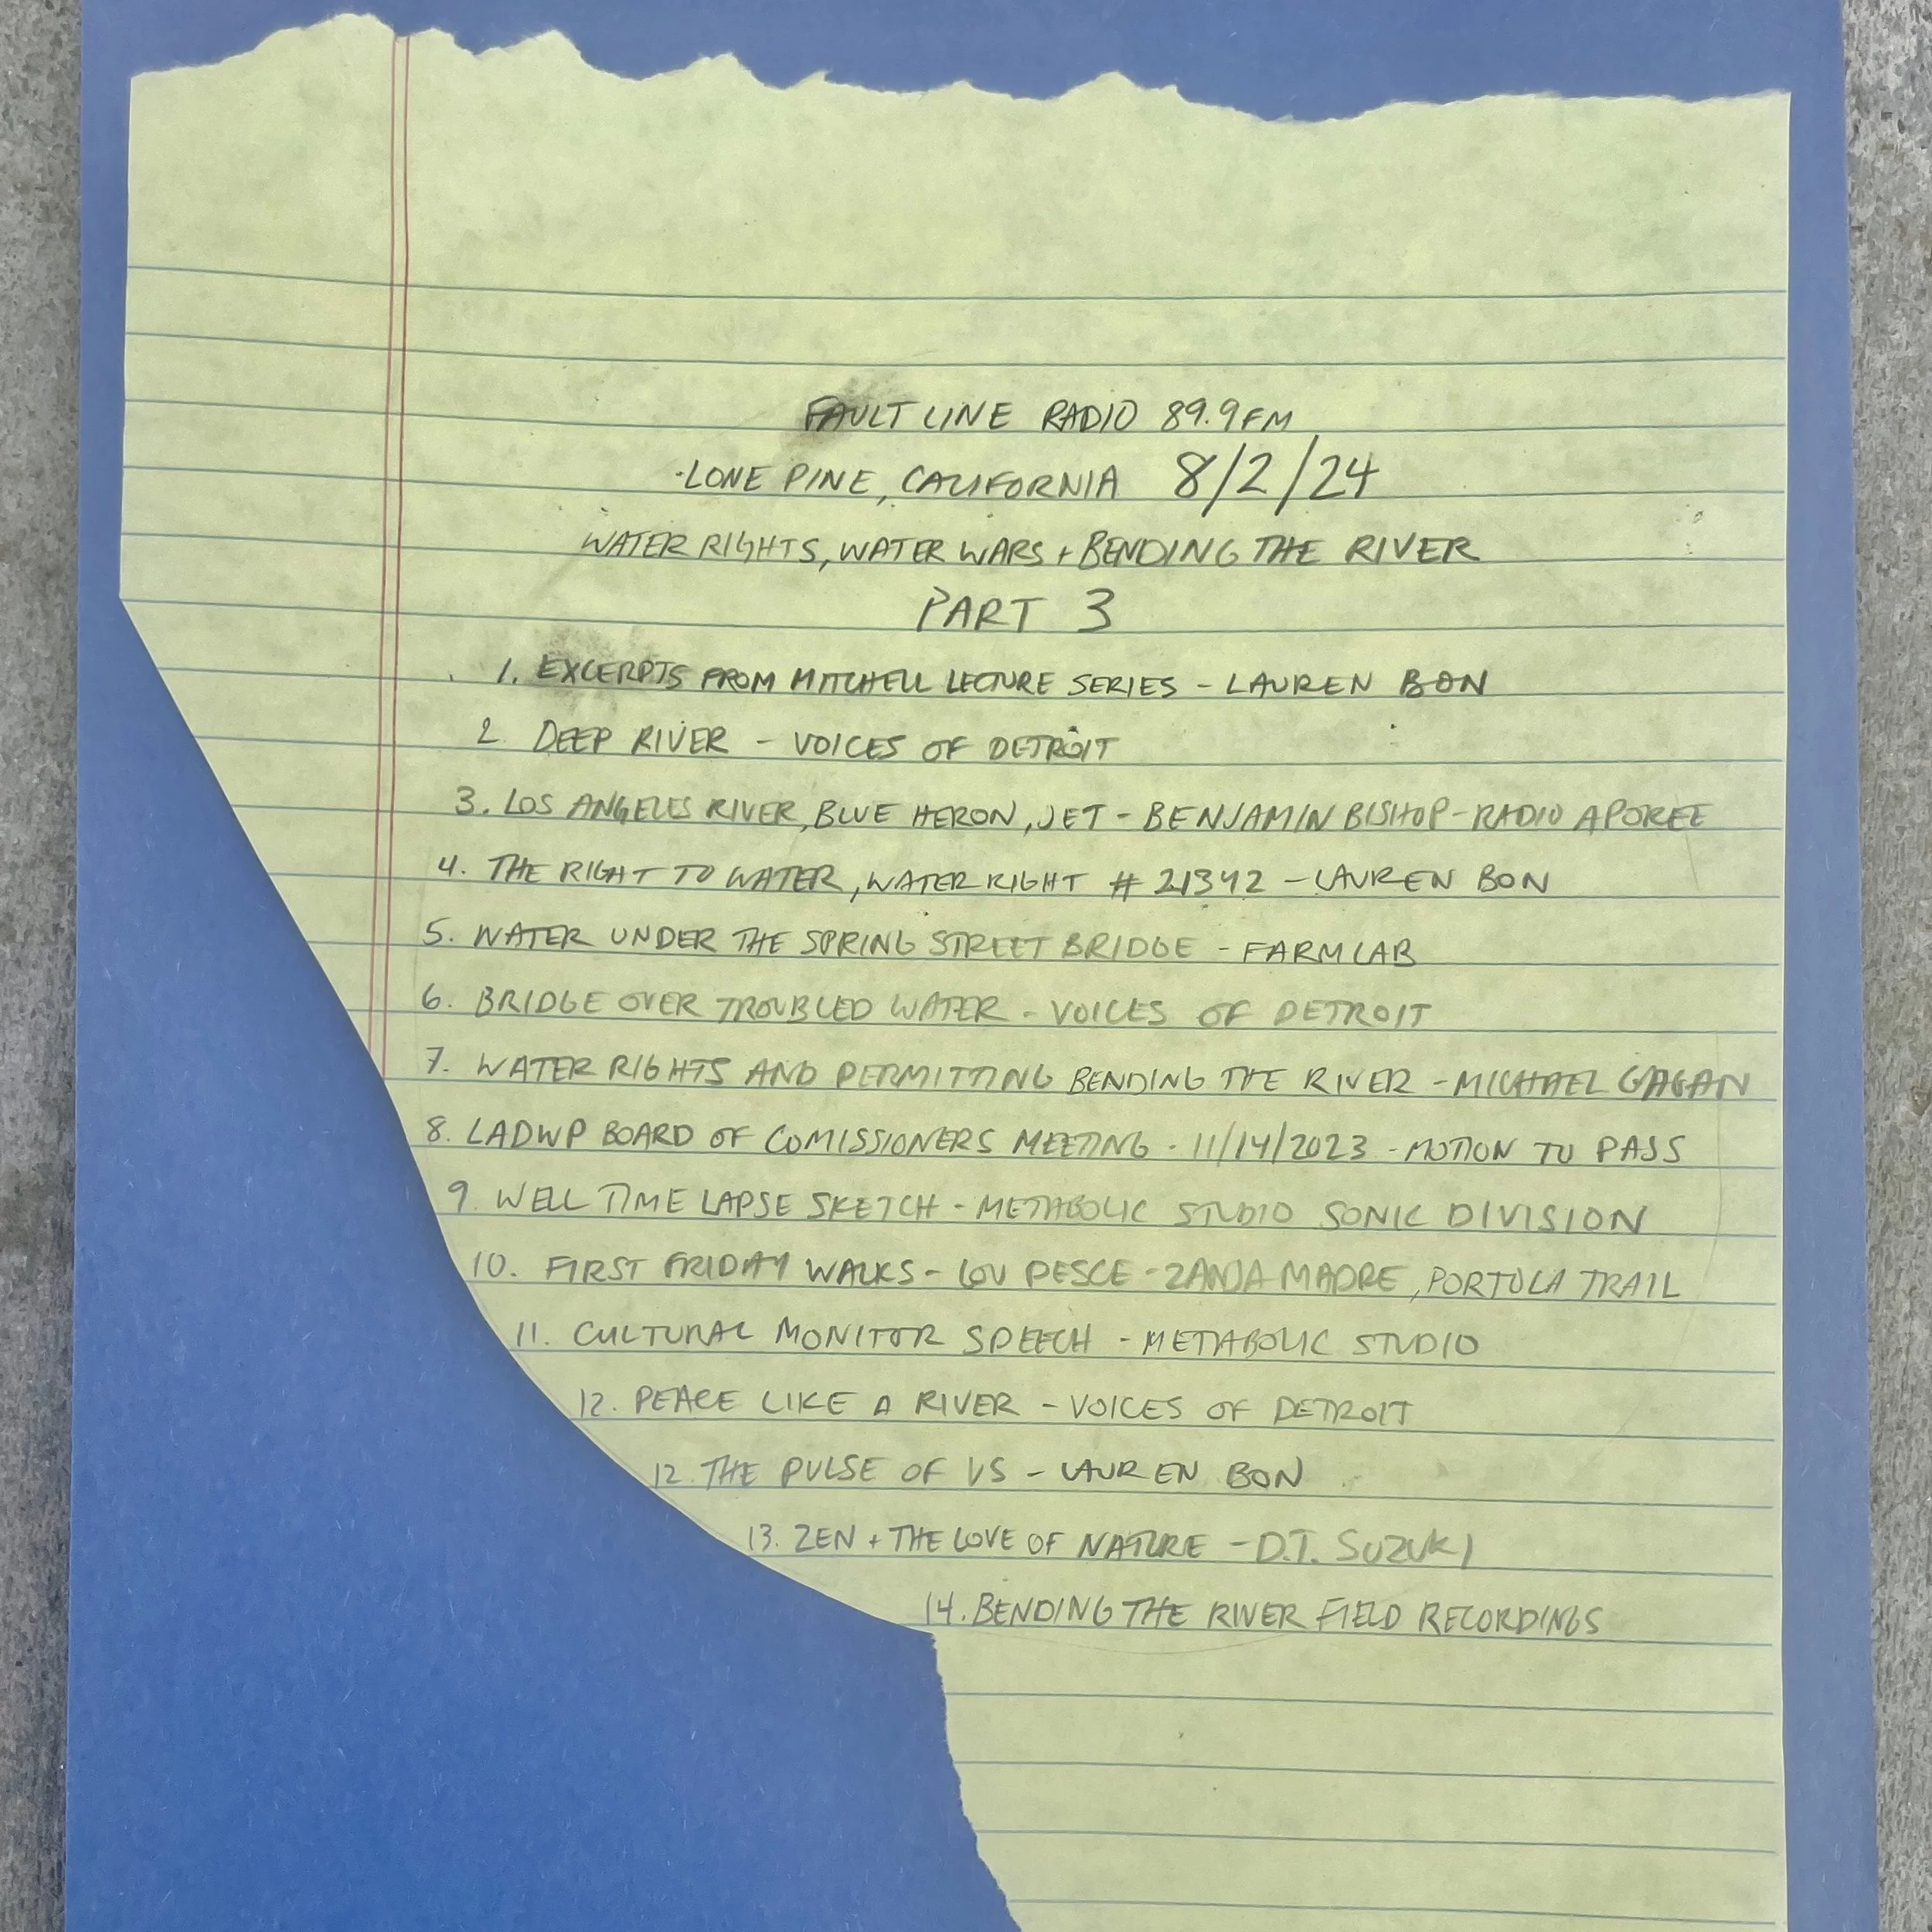 FAULT LINE RADIO 89.9FM
·LONE PINE, CALIFORNIA 8/2/24
WATER RIGHTS, WATER WARS + BENDING THE RIVER
PART 3
1. EXCERPTS FROM MITCHELL LECTURE SERIES - LAUREN BON
2. DEEP RIVER - VOICES OF DETROIT
3. LOS ANGELES RIVER, BLUE HERON, JET - BENJAMIN BISHOP - RADIO APOREE
4. THE RIGHT TO WATER, WATER RIGHT # 21342 - LAUREN BON
5. WATER UNDER THE SPRING STREET BRIDGE - FARMLAB
6. BRIDGE OVER TROUBLED WATER - VOICES OF DETROIT
7. WATER RIGHTS AND PERMITTING BENDING THE RIVER - MICHAEL GAGAN
8. LADWP BOARD OF COMISSIONERS MEETING - 11/14/2023 - MOTION TO PASS
9. WELL TIME LAPSE SKETCH - METABOLIC STUDIO SONIC DIVISION
10. FIRST FRIDAY WALKS - LOU PESCE - ZANJA MADRE, PORTOLA TRAIL
11. CULTURAL MONITOR SPEECH - METABOLIC STUDIO
12. PEACE LIKE A RIVER - VOICES OF DETROIT
12. THE PULSE OF US - LAUREN BON
13. ZEN + THE LOVE OF NATURE - D.T. SUZUKI
14. BENDING THE RIVER FIELD RECORDINGS